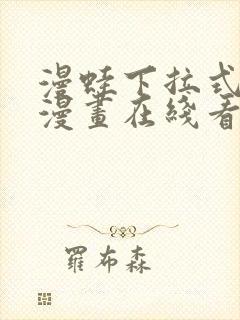 漫蛙下拉式
漫畫在綫看
羅布森